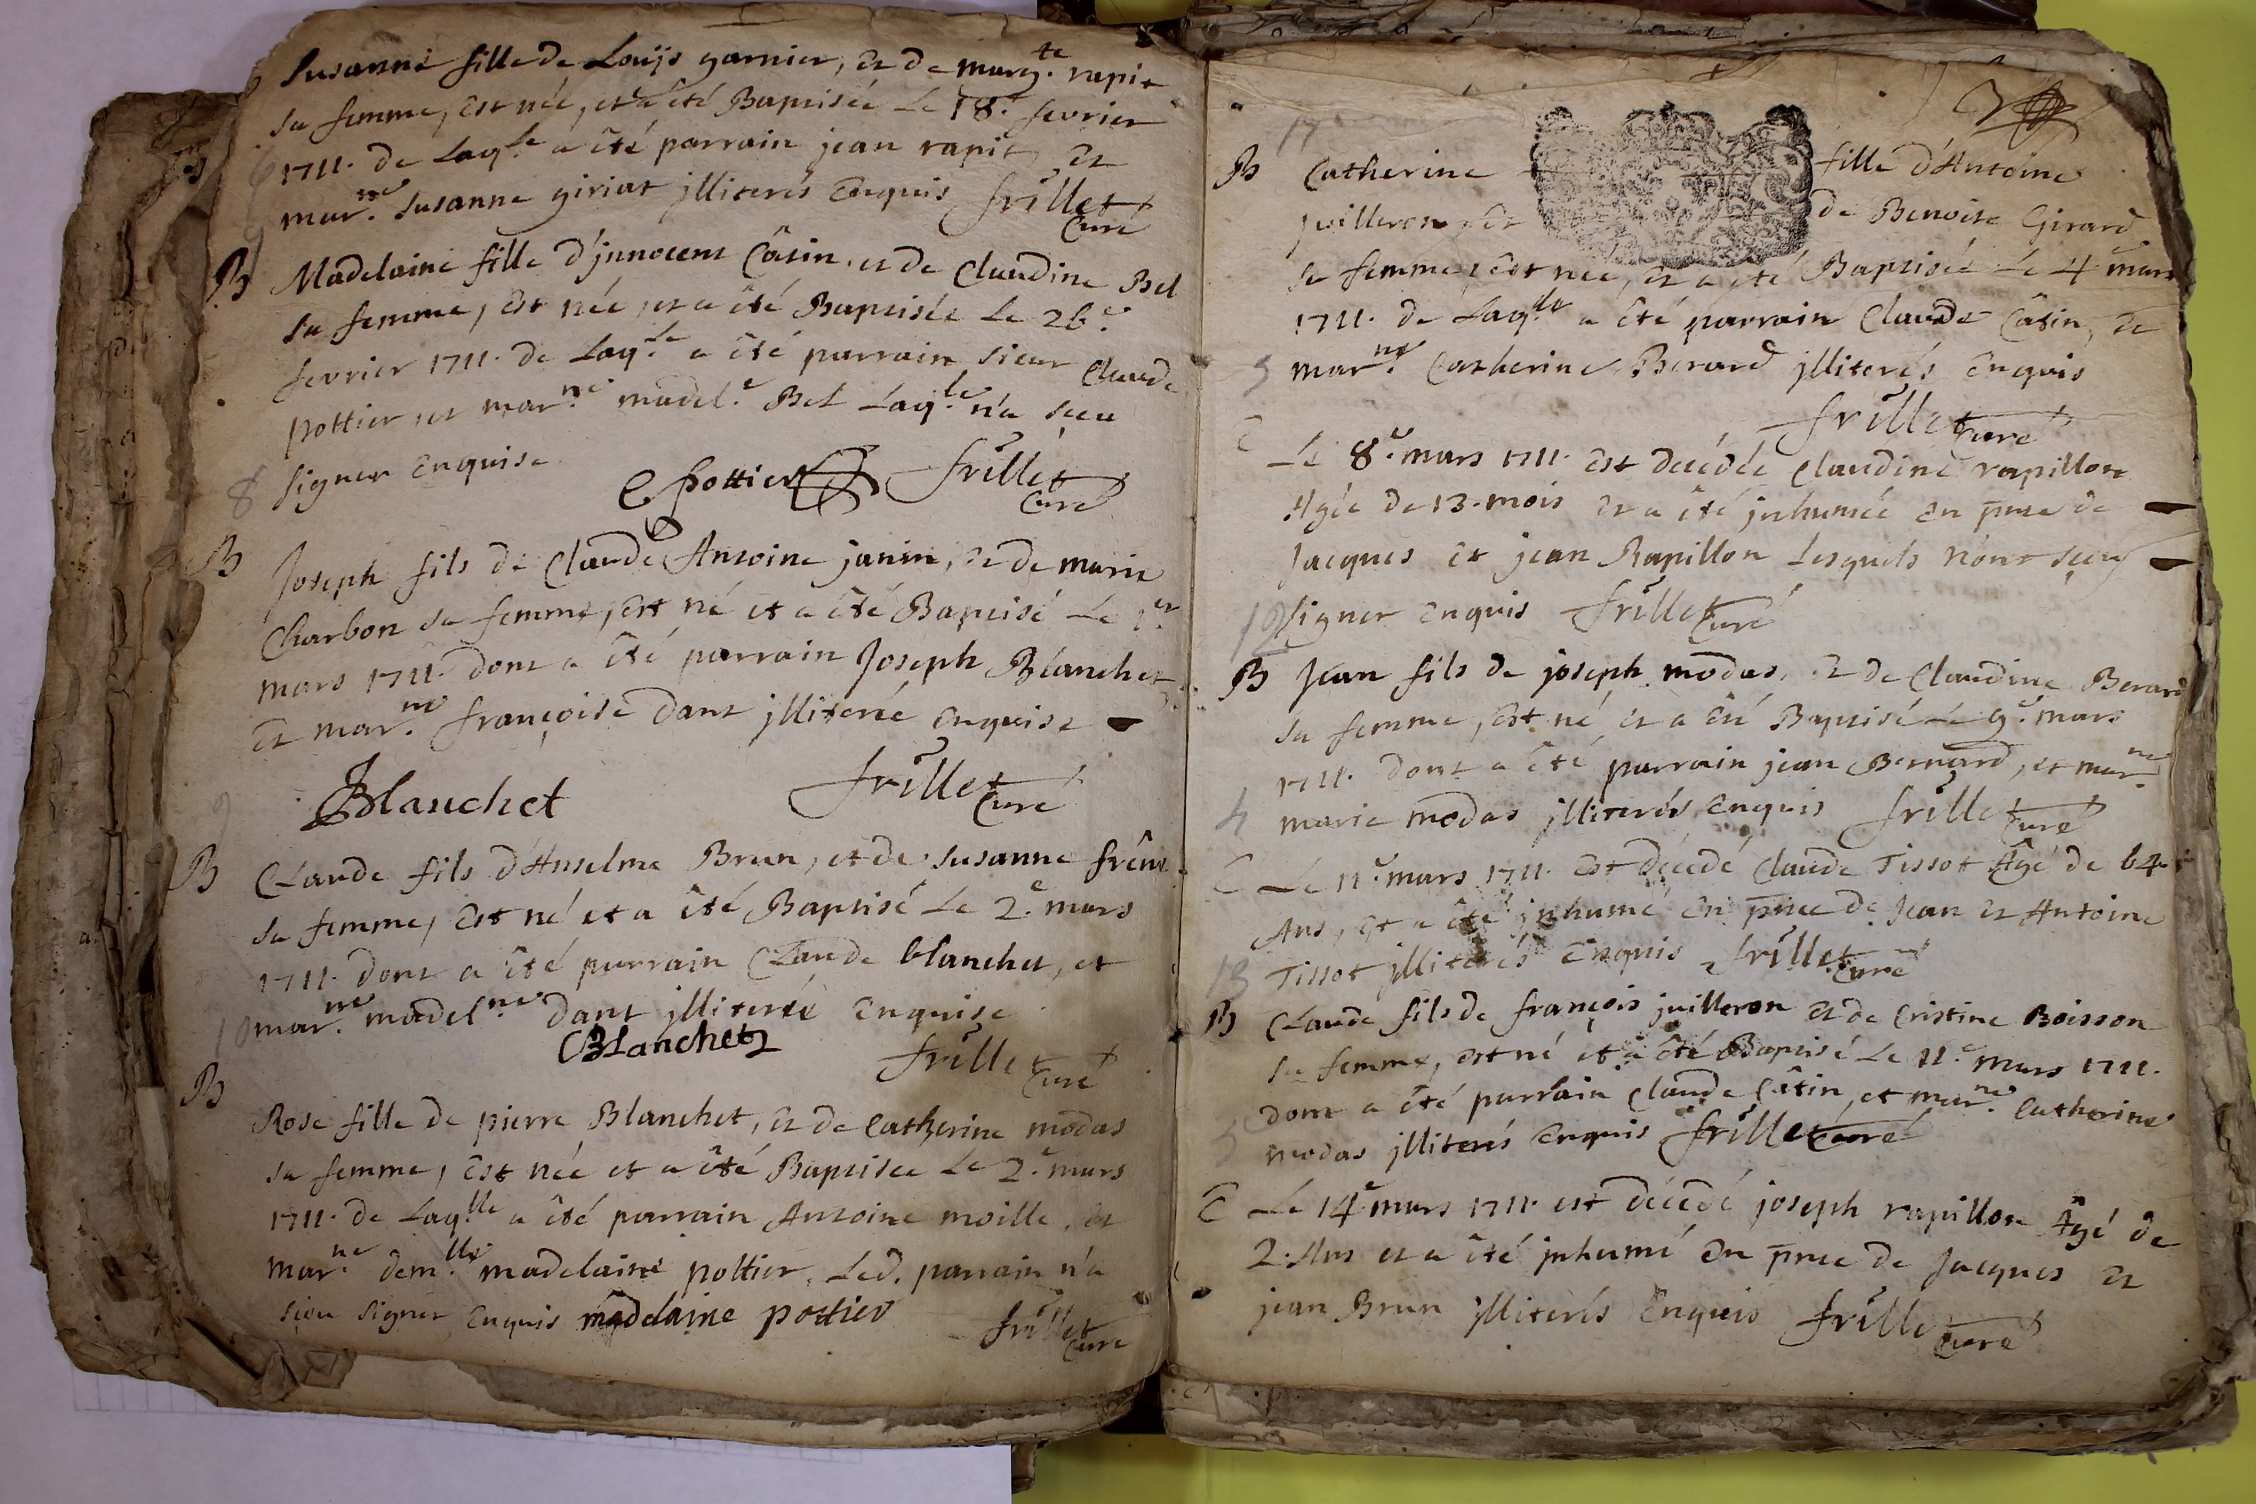 Susanne fille de Louïs garnier, et de marg.te rapit
sa femme, est née, et a été Baptisée Le 18.e fevrier
1711. de Laq.le a été parrain jean rapit, et
mar.ne susanne giriat jlliterés enquis frillet
Curé
B Madelaine fille d'jnnocent Câtin, et de Claudine Bel
sa femme, est née, et a été Baptisée Le 26.e
fevrier 1711. de Laq.le a été parrain sieur Claude
pottier, et mar.ne madel.e Bel Laq.le n'a sçeu
8 signer enquise
C pottier frillet
Curé
B Joseph fils de Claude Antoine janin, et de marie
Charbon sa femme, est né et a été Baptisé Le 1.er
mars 1711. dont a été parrain Joseph Blanchet
et mar.ne françoise dant jlliterée enquise
JBlanchet frillet
Curé
9
B Claude fils d'Anselme Brun, et de susanne frêne
sa femme, est né et a été Baptisé Le 2.e mars
1711. dont a été parrain Claude blanchet, et
10 mar.ne madel.ne dant jlliterée enquise
CBLanchet frillet
Curé
B
Rose fille de pierre Blanchet, et de Catherine modas
sa femme, est née et a été Baptisée Le 2.e mars
1711. de Laq.lle a été parrain Antoine moille, et
mar.ne dem.lle madelaine pottier, Led. parrain n'a
sçeu signer enquis madelaine pottier frillet
Curé
17
B Catherine fille d'Antoine
juilleron, et de Benoite Girard
sa femme, est née, et a été Baptisée Le 4.e mars
1711. de Laq.lle a été parrain Claude Câtin, et
3 mar.ne Catherine Berard jlliterés enquis
frillet Curé
E Le 8.e mars 1711. est decédée Claudine rapillon
Agée de 13. mois et a été jnhumée en pnce de
Jacques et jean Rapillon Lesquels n'ont sçeu
12 signer enquis frillet Curé
B Jean fils de joseph modas, et de Claudine Berard
sa femme, est né, et a été Baptisé Le 9.e mars
1711. dont a été parrain jean Bernard, et mar.ne
4 marie modas jlliterés enquis frillet Curé
E Le 11.e mars 1711. est décedé Claude Tissot Agé de 64
Ans, et a été jnhumé en pnce de Jean et Antoine
13 Tissot jlliterés enquis frillet Curé
B Claude fils de françois juilleron et de Cristine Boisson
sa femme, est né et a été Baptisé Le 11.e mars 1711.
dont a été parrain Claude Câtin, et mar.ne Catherine
5 modas jlliterés enquis frillet Curé
E Le 14.e mars 1711. est décedé joseph rapillon Agé de
2. Ans et a été jnhumé en pnce de Jacques et
jean Brun jlliterés enquis frillet Curé